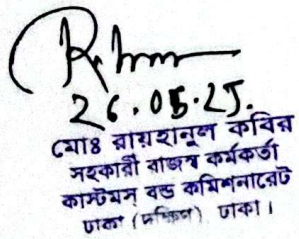 26.05.25.
মোঃ রায়হানুল কবির
সহকারী রাজস্ব কর্মকর্তা
কাস্টমস্ বন্ড কমিশনারেট
ঢাকা (দক্ষিণ) ঢাকা।